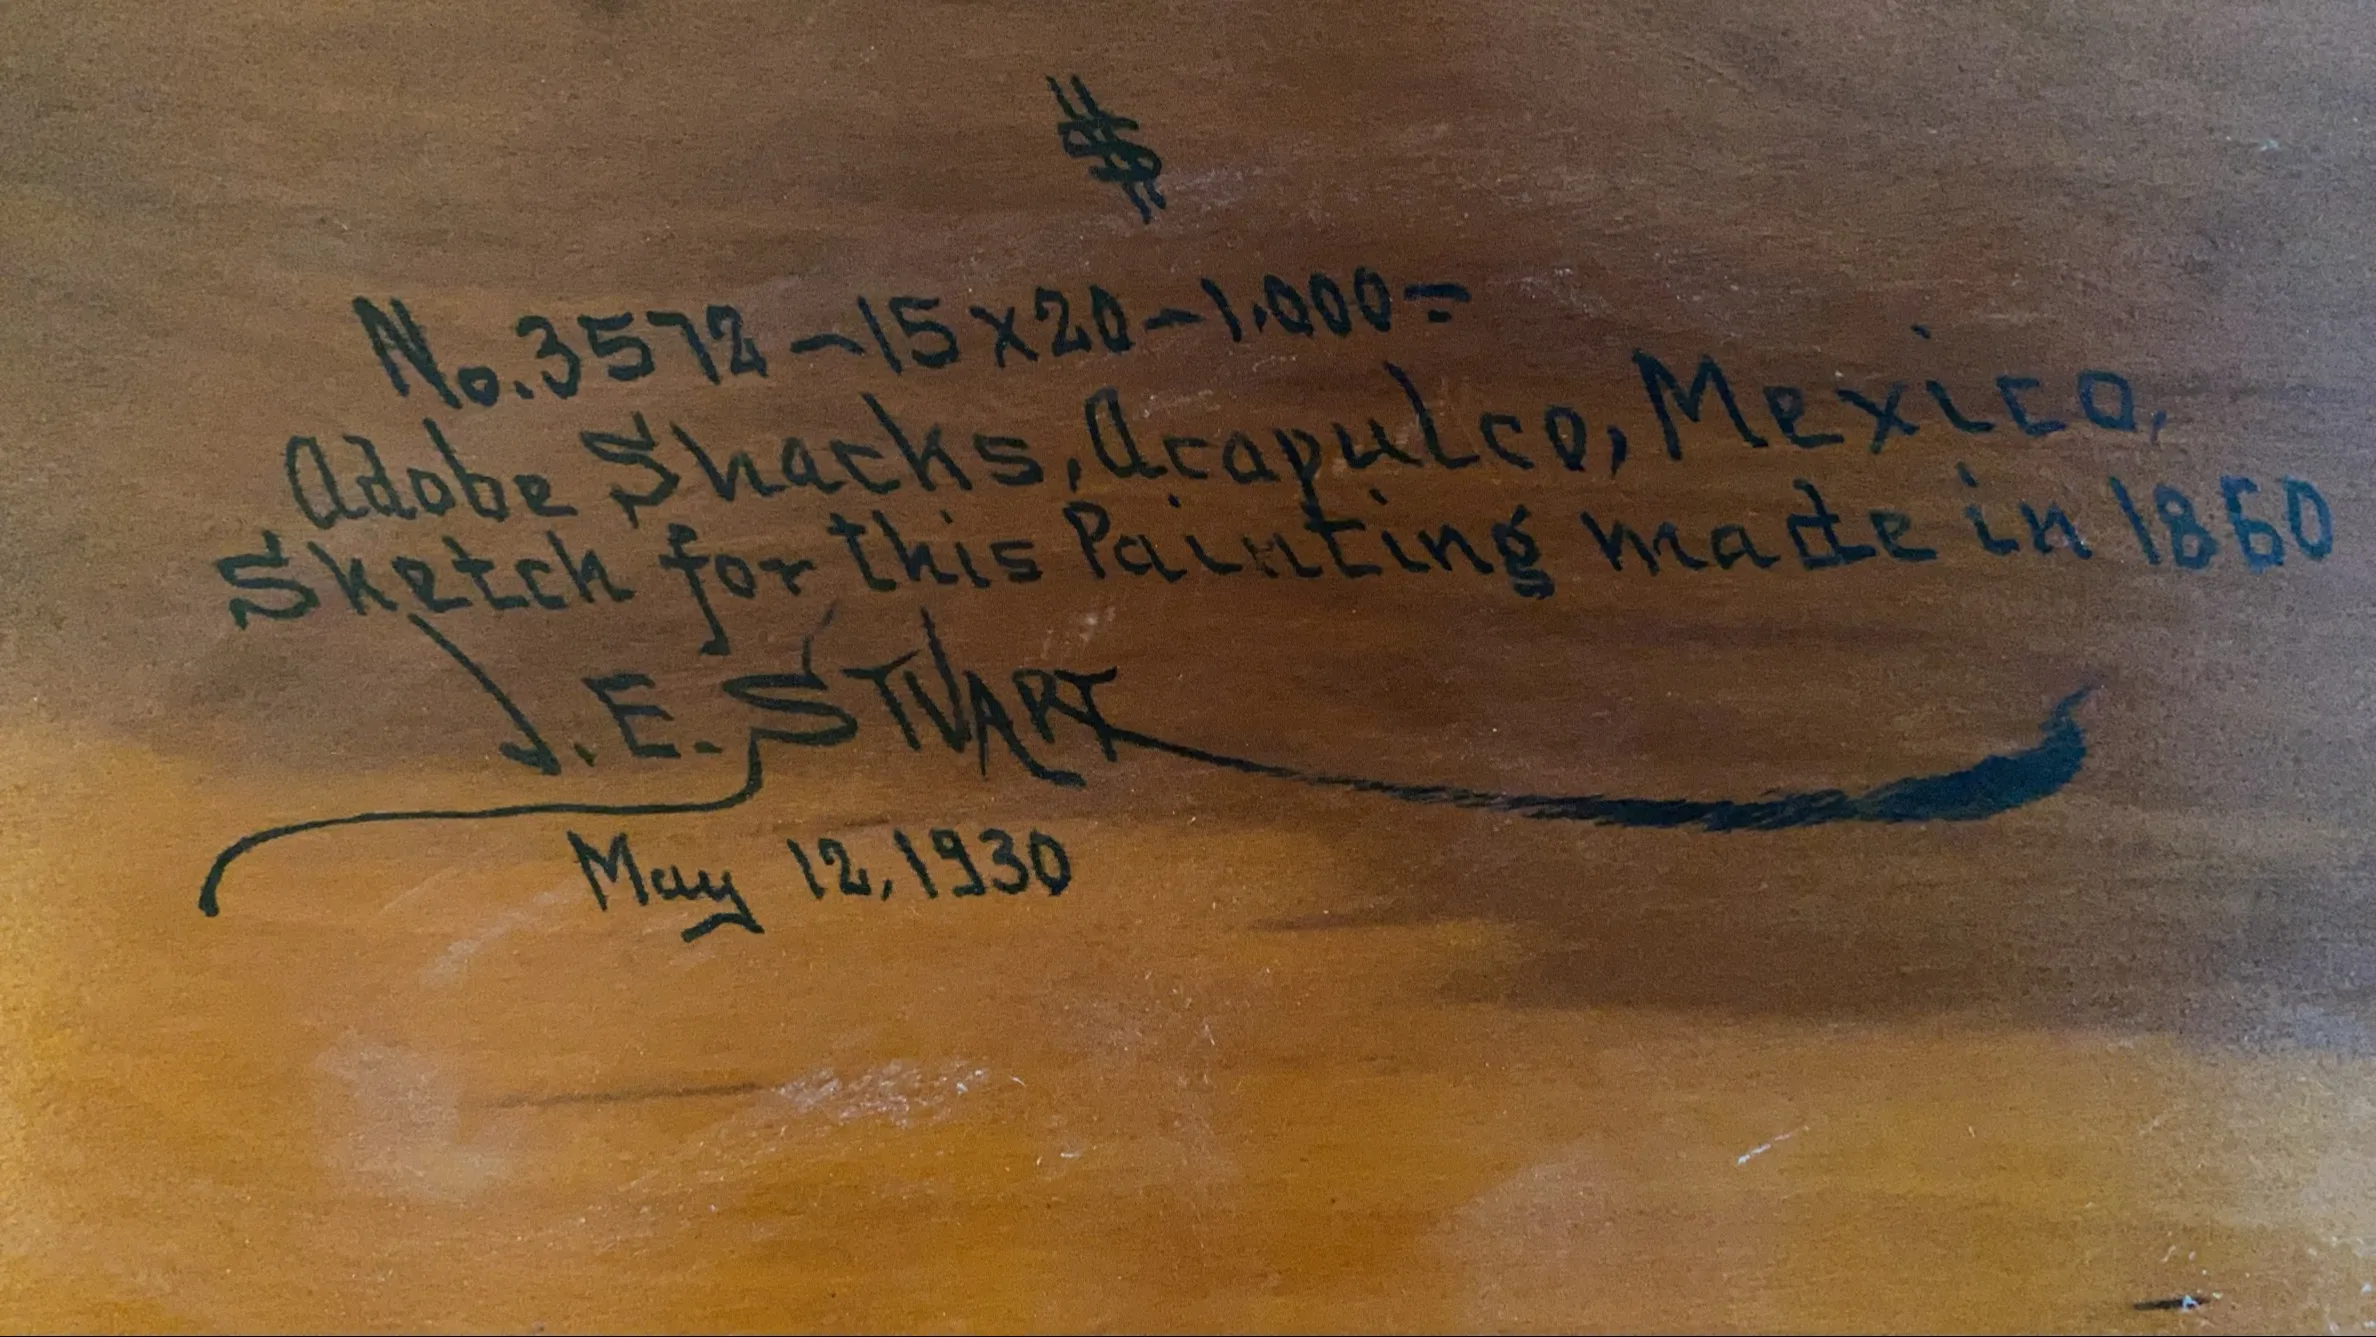 $
No. 3572 - 15 x 20 - 1.000=
Adobe Shacks, Acapulco, Mexico,
Sketch for this Painting made in 1860
J. E. STUART
May 12, 1930